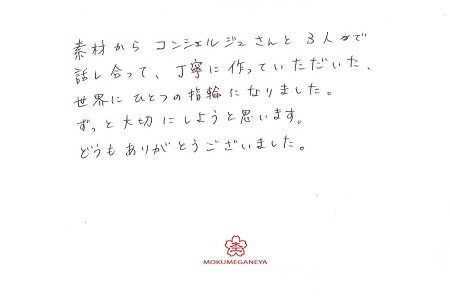 素材から コンシェルジュさんと 3人で
話し合って、丁寧に作っていただいた、
世界にひとつの指輪になりました。
ずっと大切にしようと思います。
どうもありがとうございました。
MOKUMEGANEYA